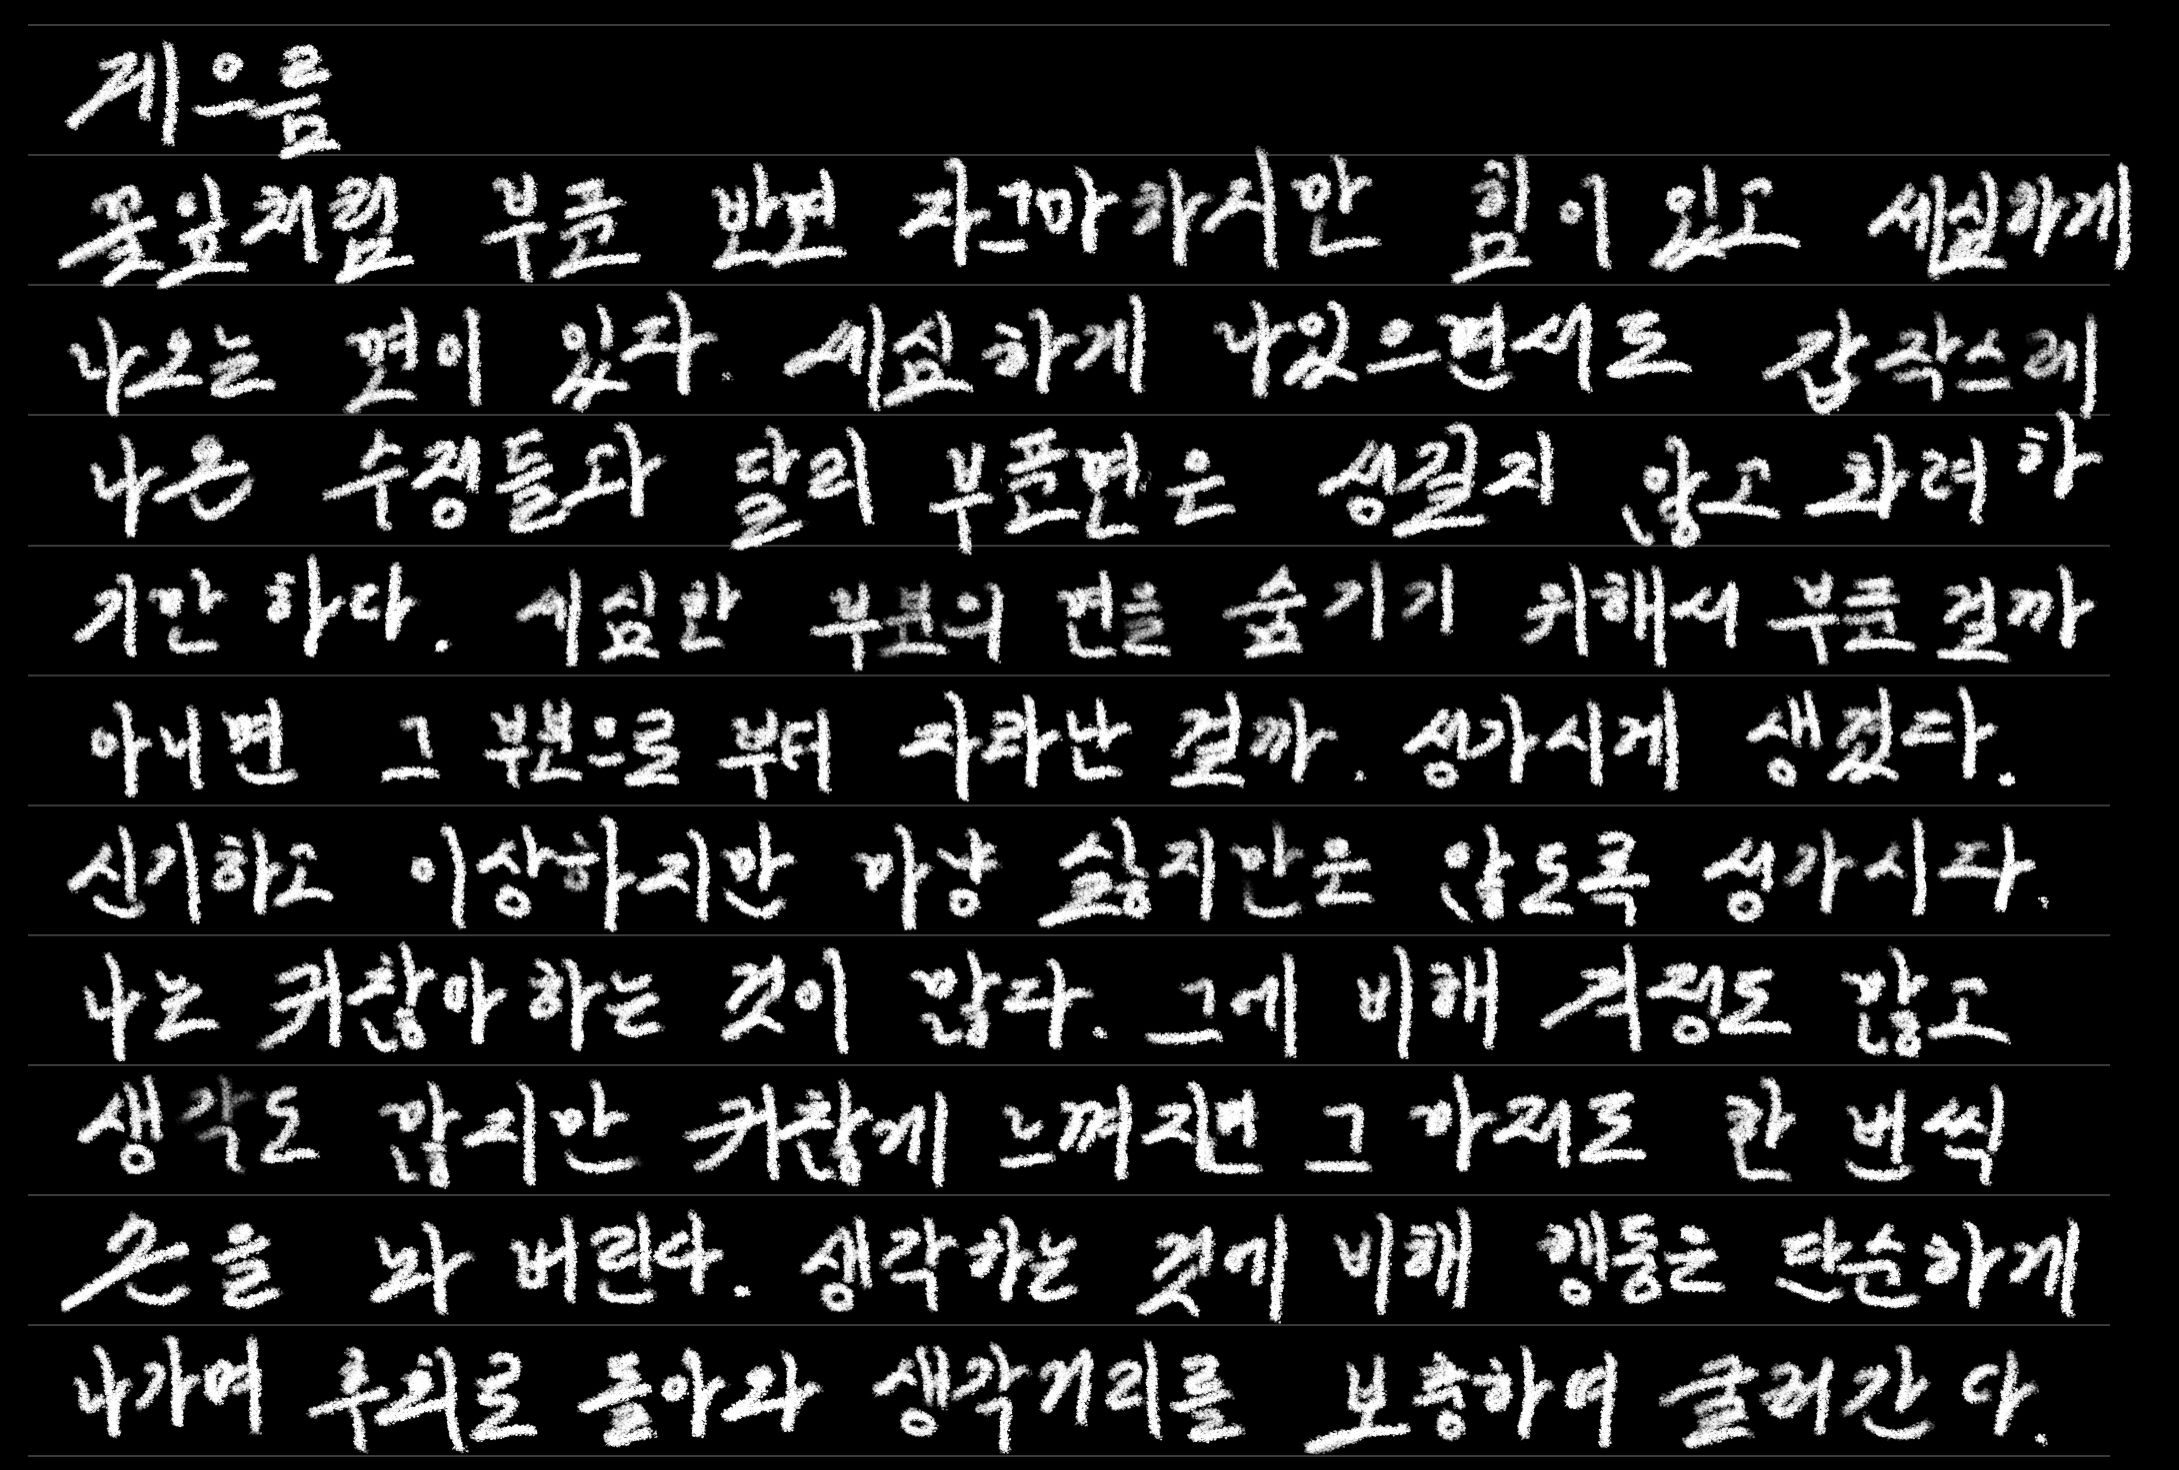 게으름
꽃잎처럼 부푼 반면 자그마하지만 힘이 있고 세심하게
나오는 면이 있다. 세심하게 나있으면서도 갑작스레
나온 수정들과 달리 부푼면은 성길지 않고 화려하
기만 하다. 세심한 부분의 면을 숨기기 위해서 부푼 걸까
아니면 그 부분으로 부터 자라난 걸까. 성가시게 생겼다.
신기하고 이상하지만 마냥 싫지만은 않도록 성가시다.
나는 귀찮아 하는 것이 많다. 그에 비해 걱정도 많고
생각도 많지만 귀찮게 느껴지면 그 마저도 한 번씩
손을 놔 버린다. 생각하는 것에 비해 행동은 단순하게
나가며 후회로 돌아와 생각거리를 보충하여 굴러간다.